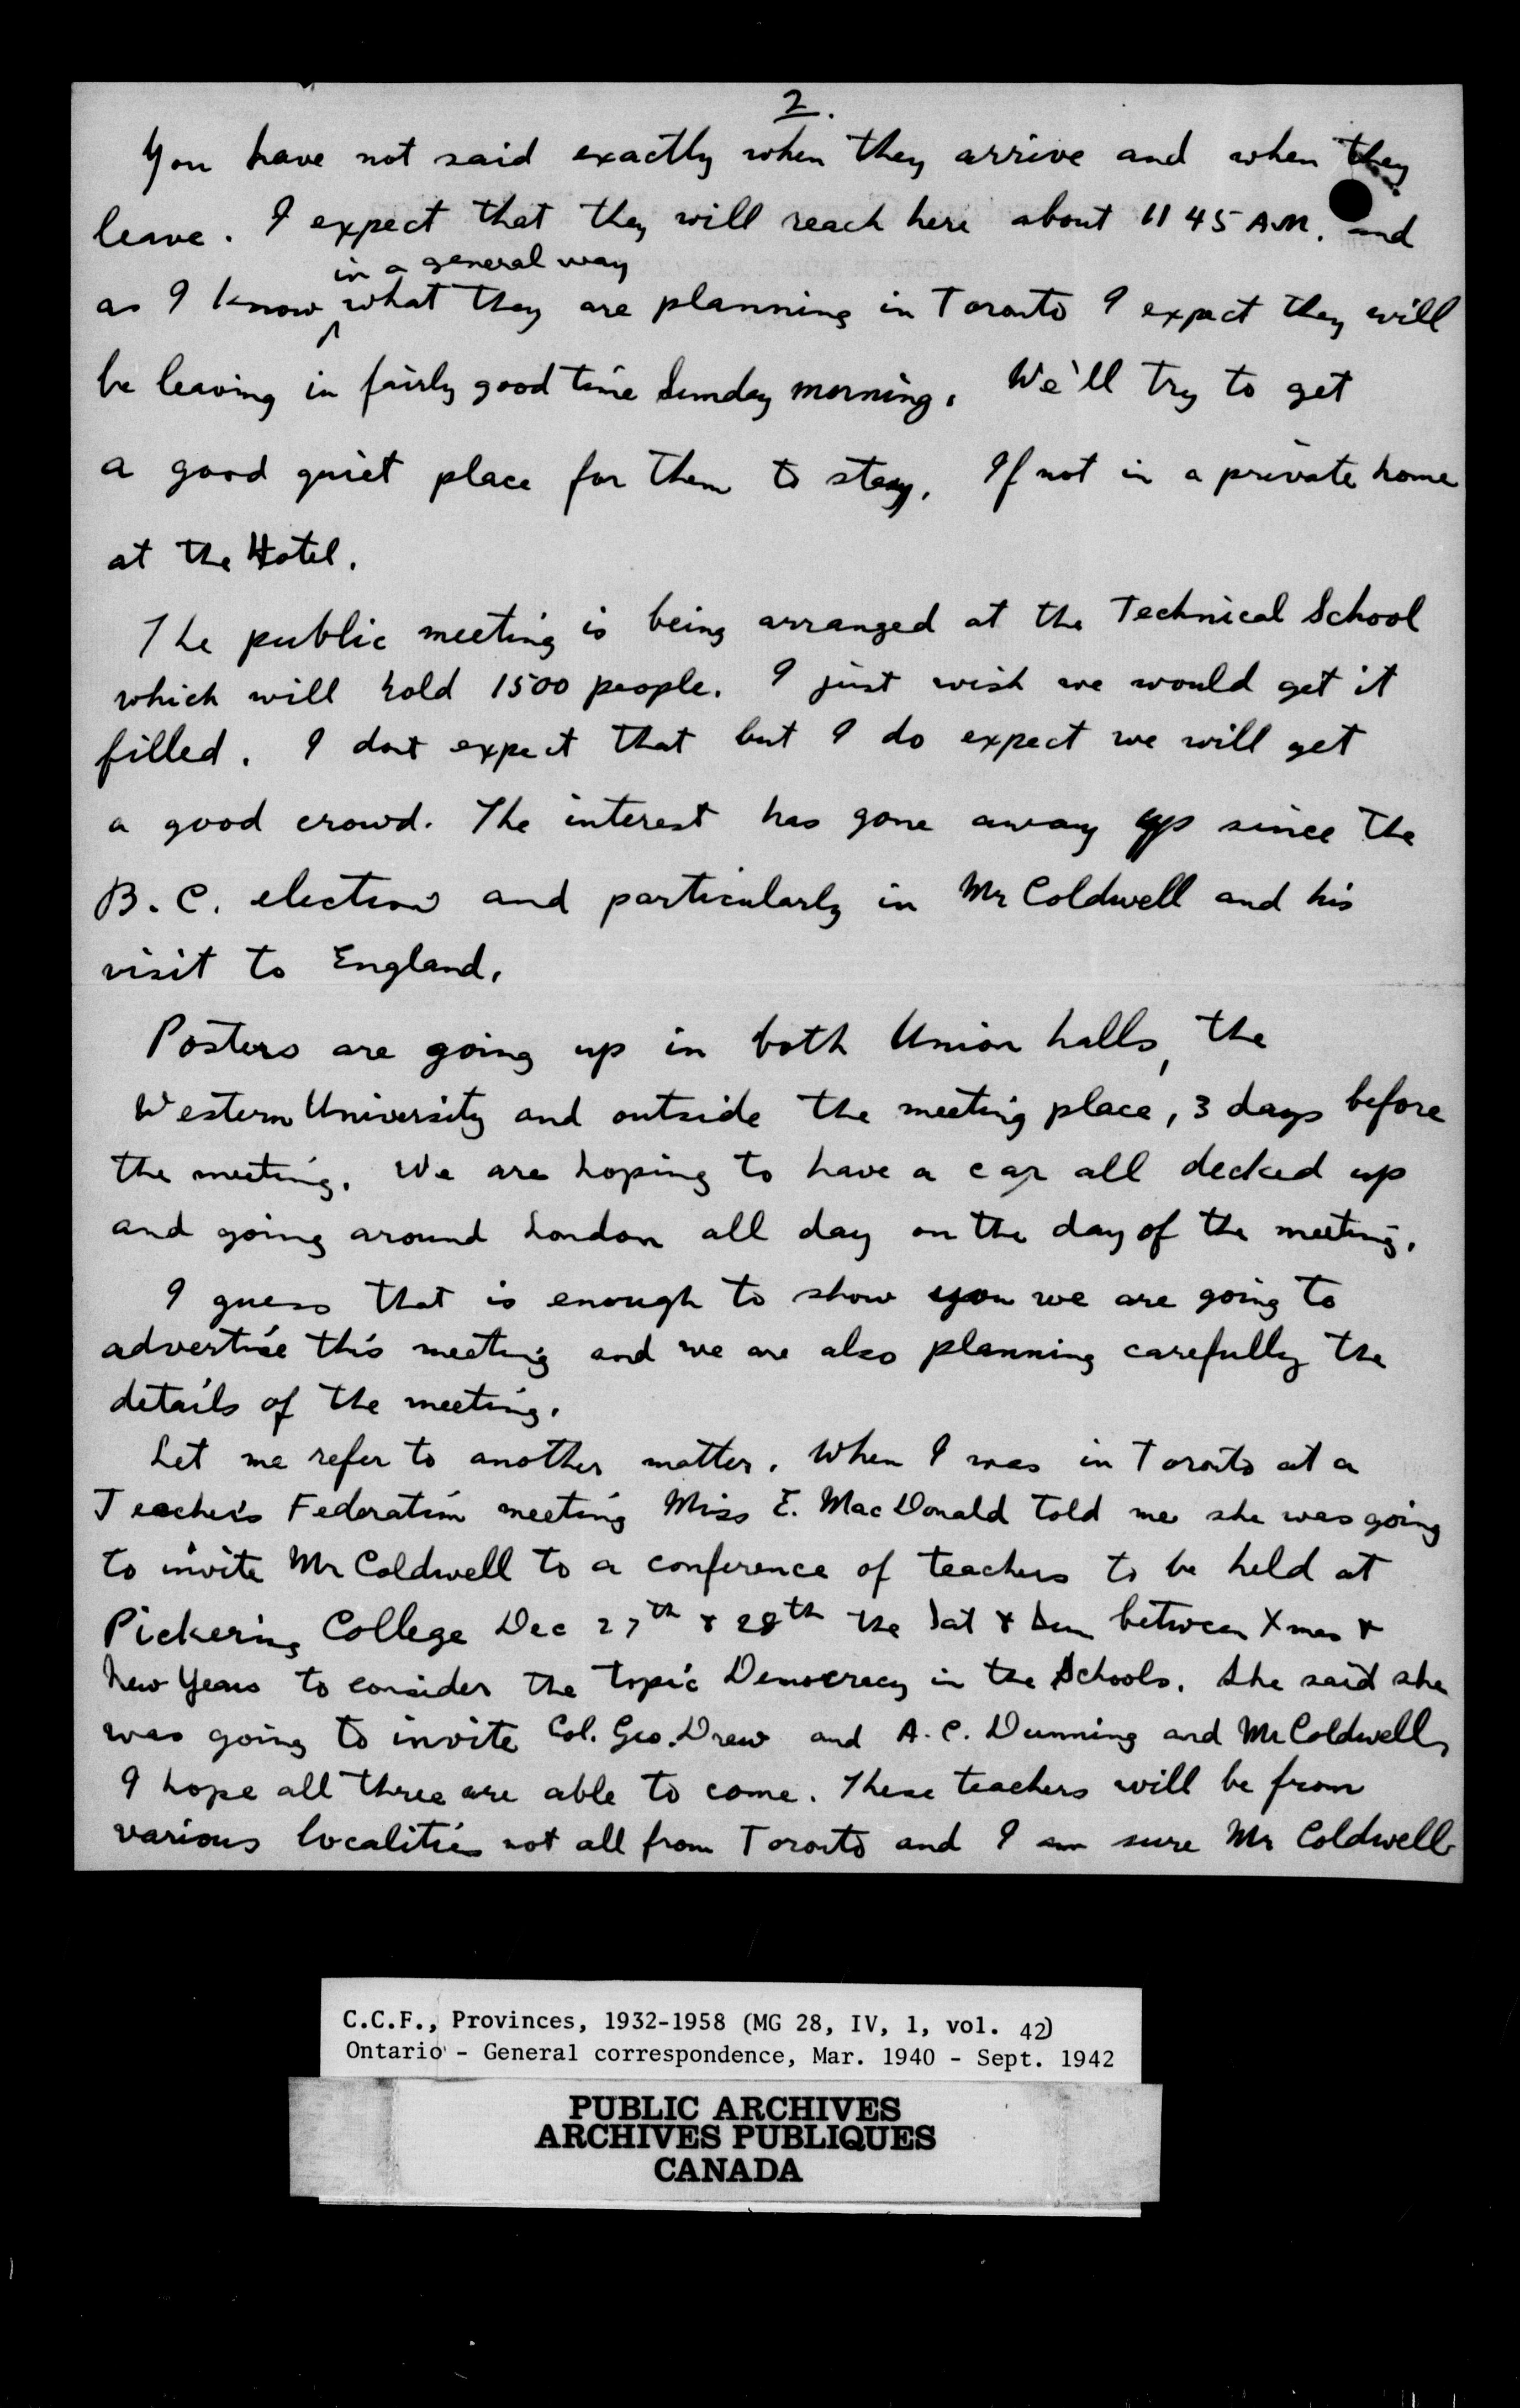 2.
You have not said exactly when they arrive and when they
leave. I expect that they will reach here about 11 45 A.M. and
in a general way
as I know what they are planning in Toronto I expect they will
be leaving in fairly good time Sunday morning. We'll try to get
a good quiet place for them to stay. If not in a private home
at the Hotel.
The public meeting is being arranged at the Technical School
which will hold 1500 people. I just wish we would get it
filled. I dont expect that but I do expect we will get
a good crowd. The interest has gone away up since the
B.C. election and particularly in Mr Coldwell and his
visit to England.
Posters are going up in both Union halls, the
Western University and outside the meeting place, 3 days before
the meeting. We are hoping to have a car all decked up
and going around London all day on the day of the meeting.
I guess that is enough to show you we are going to
advertise this meeting and we are also planning carefully the
details of the meeting.
Let me refer to another matter. When I was in Toronto at a
Teacher's Federation meeting Miss E. MacDonald told me she was going
to invite Mr Coldwell to a conference of teachers to be held at
Pickering College Dec 27th & 28th the Sat & Sun between Xmas &
New Years to consider the topic Democracy in the Schools. She said she
was going to invite Col. Geo. Drew and A.C. Dunning and Mr Coldwell,
I hope all three are able to come. These teachers will be from
various localities not all from Toronto and I am sure Mr Coldwell
C.C.F., Provinces, 1932-1958 (MG 28, IV, 1, vol. 42)
Ontario - General correspondence, Mar. 1940 - Sept. 1942
PUBLIC ARCHIVES
ARCHIVES PUBLIQUES
CANADA